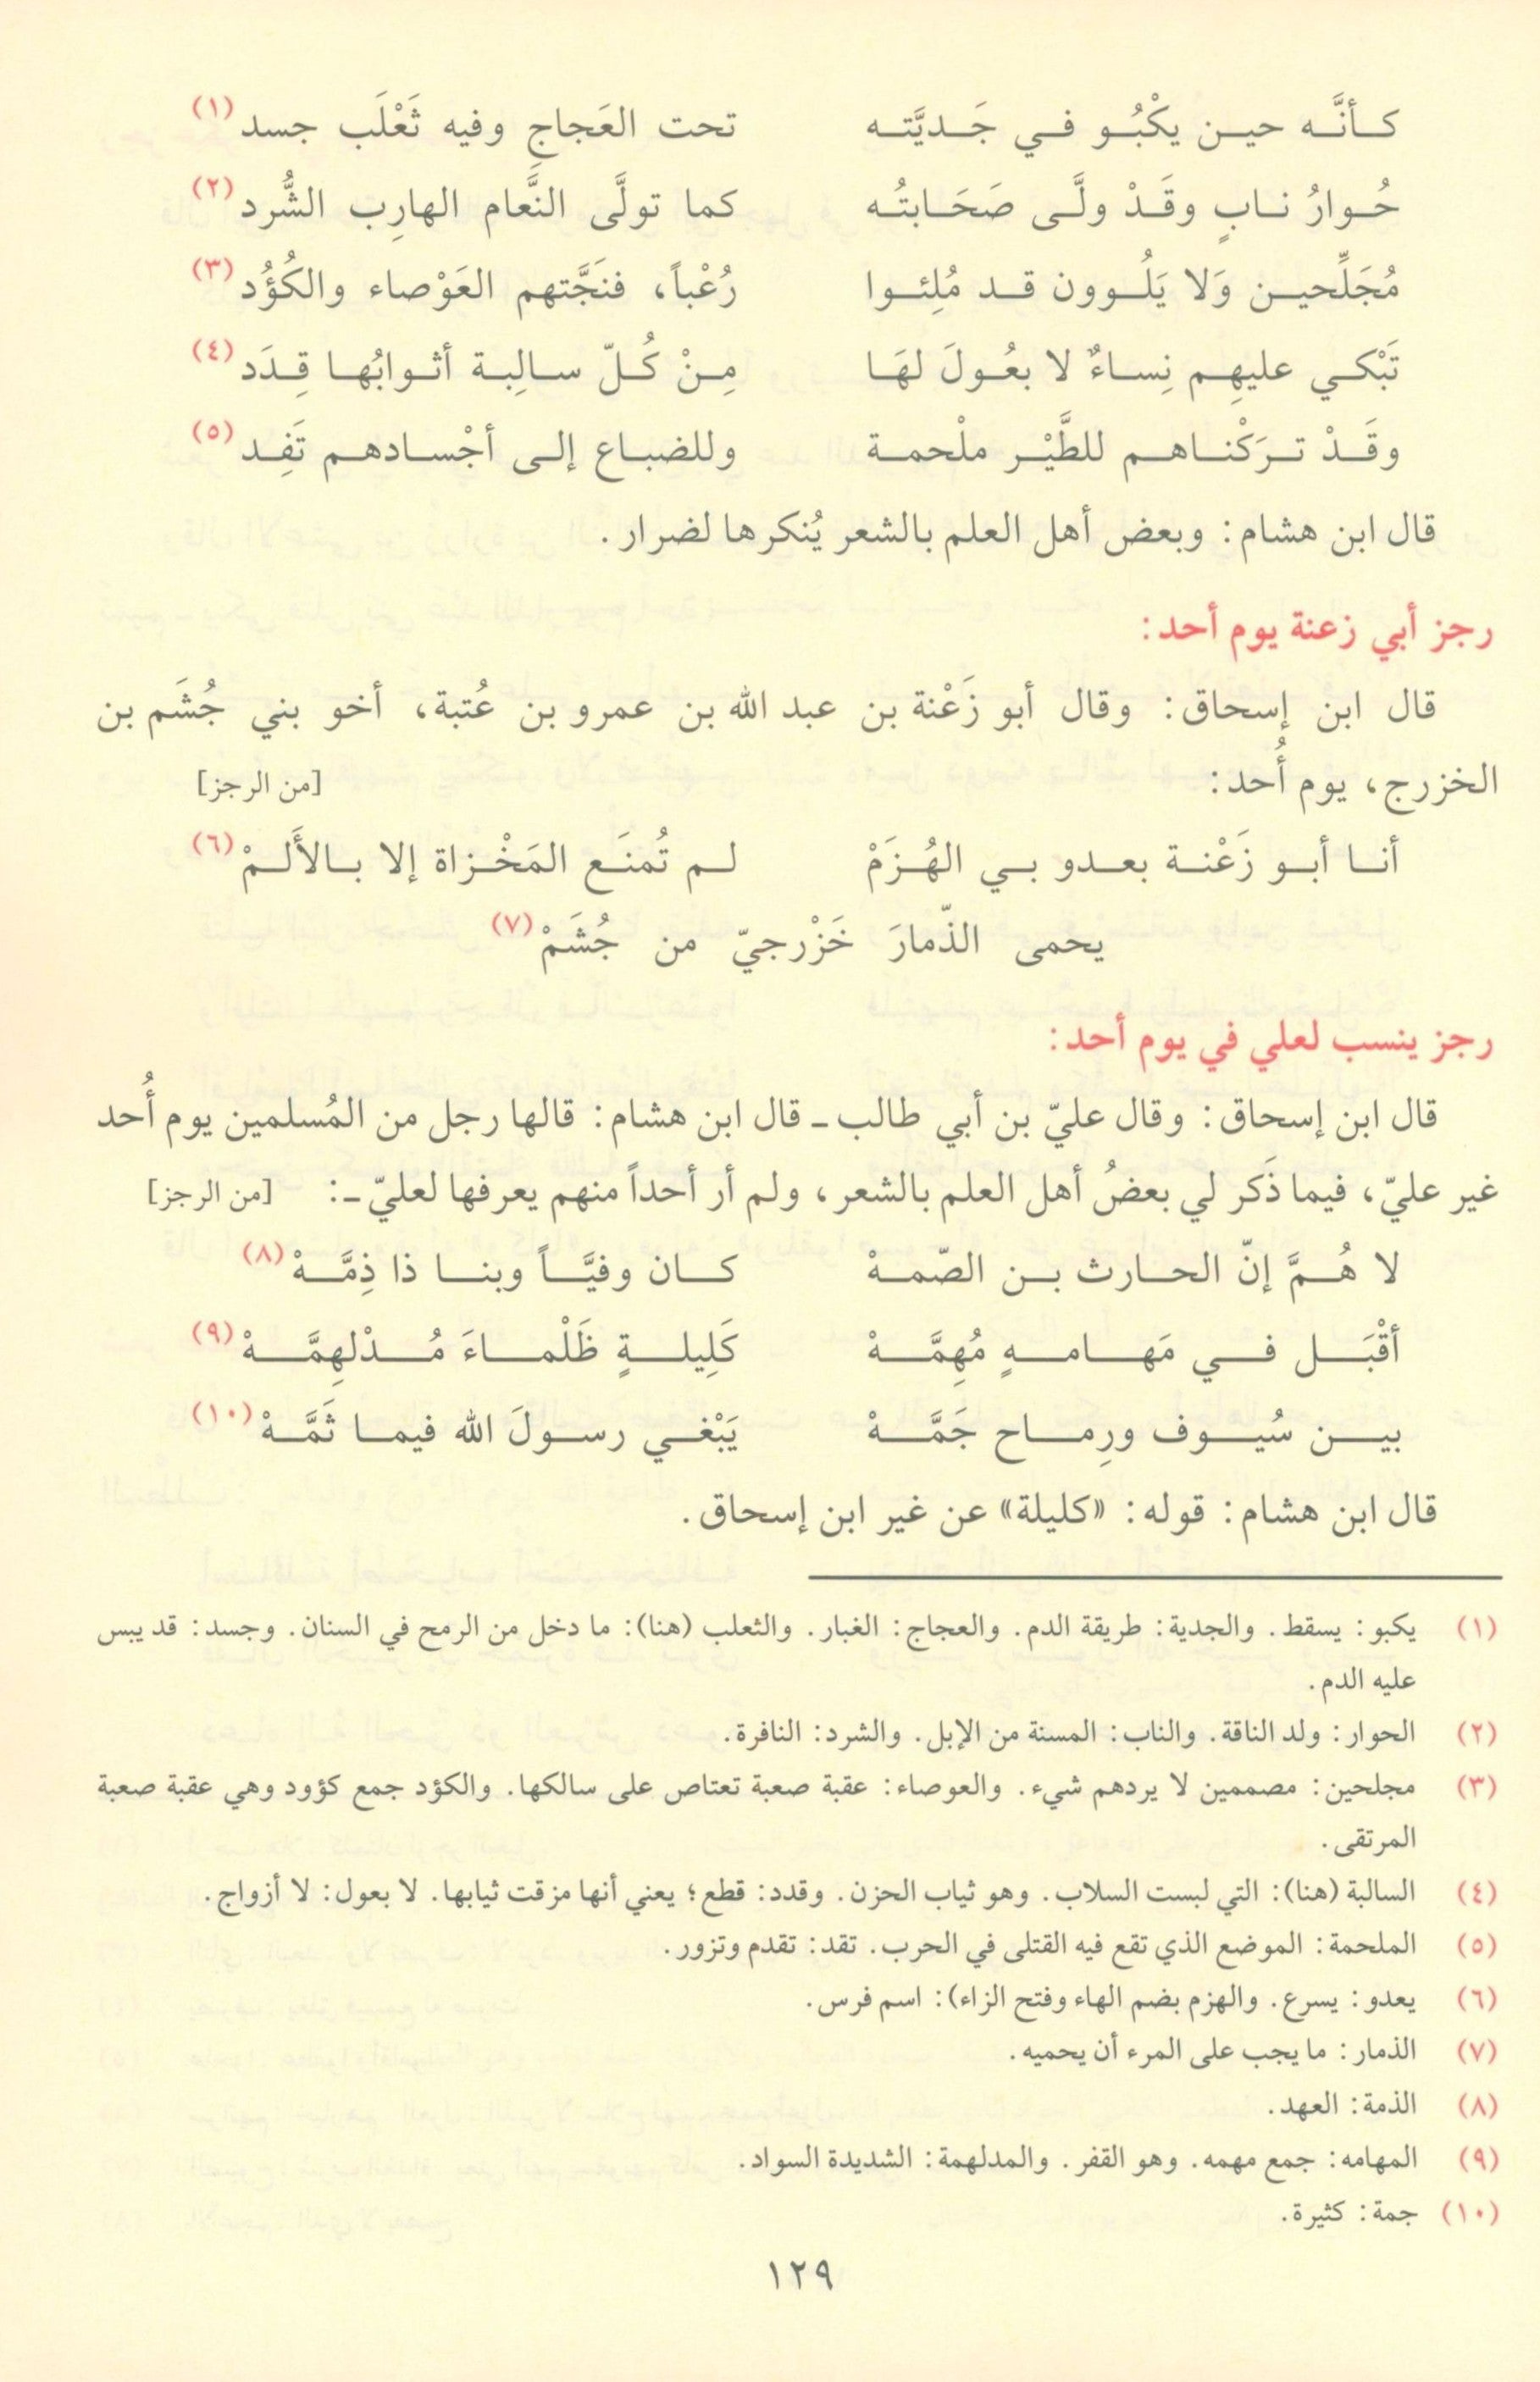 كأنَّه حين يكْبُو في جَديَّته تحت العَجاجِ وفيه ثَعْلَب جسد(١)
حُوارُ نابٍ وقَدْ ولَّى صَحَابتُه كما تولَّى النَّعام الهارِب الشُّرد(٢)
مُجَلِّحين وَلا يَلُوون قد مُلِئوا رُعْباً، فنَجَّتهم العَوْصاء والكُؤُد(٣)
تَبْكي عليهِم نِساءٌ لا بعُولَ لهَا مِنْ كُلّ سالِبة أثوابُها قِدَد(٤)
وقَدْ ترَكْناهم للطَّيْر ملْحمة وللضباع إلى أجْسادهم تَفِد(٥)
قال ابن هشام: وبعض أهل العلم بالشعر يُنكرها لضرار.
رجز أبي زعنة يوم أحد:
قال ابن إسحاق: وقال أبو زَعْنة بن عبد الله بن عمرو بن عُتبة، أخو بني جُشَم بن
الخزرج، يوم أُحد: [من الرجز]
أنا أبو زَعْنة يعدو بي الهُزَمْ لم تُمنَع المَخْزاة إلا بالأَلمْ(٦)
يحمى الذّمارَ خَزْرجيّ من جُشَمْ(٧)
رجز ينسب لعلي في يوم أحد:
قال ابن إسحاق: وقال عليّ بن أبي طالب ـ قال ابن هشام: قالها رجل من المُسلمين يوم أُحد
غير عليّ، فيما ذَكر لي بعضُ أهل العلم بالشعر، ولم أر أحداً منهم يعرفها لعليّ ـ: [من الرجز]
لا هُمَّ إنّ الحارث بن الصّمهْ كان وفيَّاً وبنا ذا ذِمَّهْ(٨)
أقْبَل في مَهامهٍ مُهِمَّهْ كَلِيلةٍ ظَلْماءَ مُدْلهِمَّهْ(٩)
بين سُيوف ورِماح جَمَّهْ يَبْغي رسولَ الله فيما ثَمَّهْ(١٠)
قال ابن هشام: قوله: «كليلة» عن غير ابن إسحاق.
(١) يكبو: يسقط. والجدية: طريقة الدم. والعجاج: الغبار. والثعلب (هنا): ما دخل من الرمح في السنان. وجسد: قد يبس
عليه الدم.
(٢) الحوار: ولد الناقة. والناب: المسنة من الإبل. والشرد: النافرة.
(٣) مجلحين: مصممين لا يردهم شيء. والعوصاء: عقبة صعبة تعتاص على سالكها. والكؤد جمع كؤود وهي عقبة صعبة
المرتقى.
(٤) السالبة (هنا): التي لبست السلاب. وهو ثياب الحزن. وقدد: قطع؛ يعني أنها مزقت ثيابها. لا بعول: لا أزواج.
(٥) الملحمة: الموضع الذي تقع فيه القتلى في الحرب. تقد: تقدم وتزور.
(٦) يعدو: يسرع. والهزم بضم الهاء وفتح الزاء): اسم فرس.
(٧) الذمار: ما يجب على المرء أن يحميه.
(٨) الذمة: العهد.
(٩) المهامه: جمع مهمه. وهو القفر. والمدلهمة: الشديدة السواد.
(١٠) جمة: كثيرة.
١٢٩